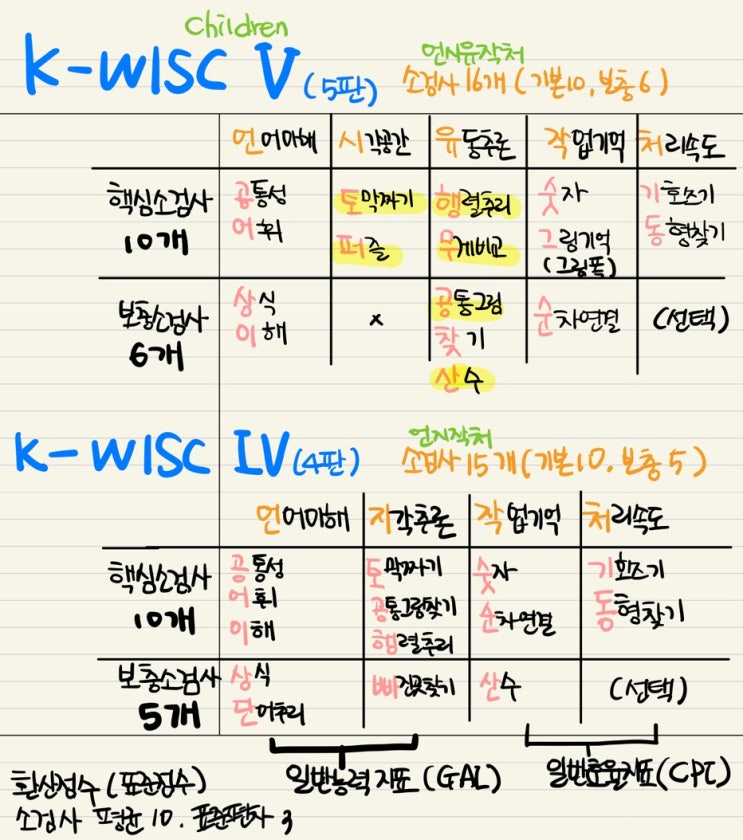 Children
K-WISC V (5판)
언시유작처
소검사 16개 (기본10, 보충6)
언어이해 시각공간 유동추론 작업기억 처리속도
핵심소검사 10개
공통성 토막짜기 행렬추리 숫자 기호쓰기
어휘 퍼즐 무게비교 그림기억 동형찾기
(그림폭)
보충소검사 6개
상식 x 공통그림 순차연결 (선택)
이해 찾기
산수
K-WISC IV (4판)
언지작처
소검사 15개 (기본10, 보충5)
언어이해 지각추론 작업기억 처리속도
핵심소검사 10개
공통성 토막짜기 숫자 기호쓰기
어휘 공통그림찾기 순차연결 동형찾기
이해 행렬추리
보충소검사 5개
상식 빠진곳찾기 산수 (선택)
단어추리
일반능력지표(GAL) 일반효율지표(CPI)
환산점수 (표준점수)
소검사 평균 10. 표준편차 3